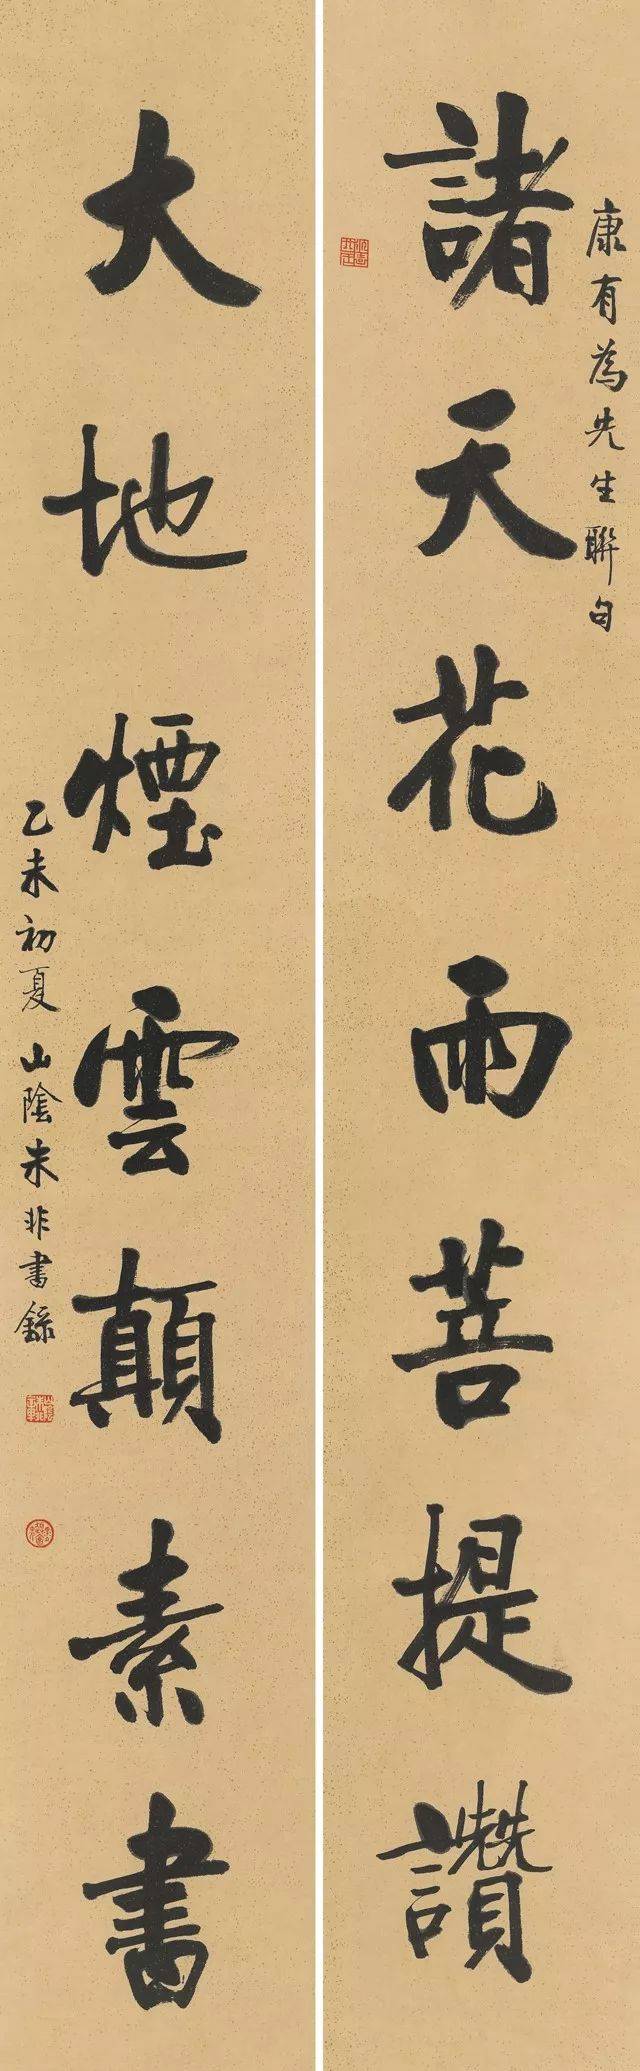 康有為先生聯句
諸天花雨菩提讚
大地煙雲顛素書
乙未初夏山陰朱非書錄